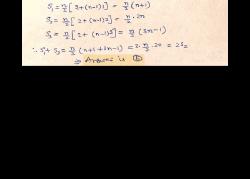 S₁ = n/2 [2+(n-1)1] = n/2 (n+1)
S₂ = n/2 [2+(n-1)2] = n/2 · 2n
S₃ = n/2 [2+(n-1)3] = n/2 (3n-1)
∴ S₁+S₃ = n/2 (n+1+3n-1) = 2·n/2·2n = 2S₂
⇒ Answer is (b)